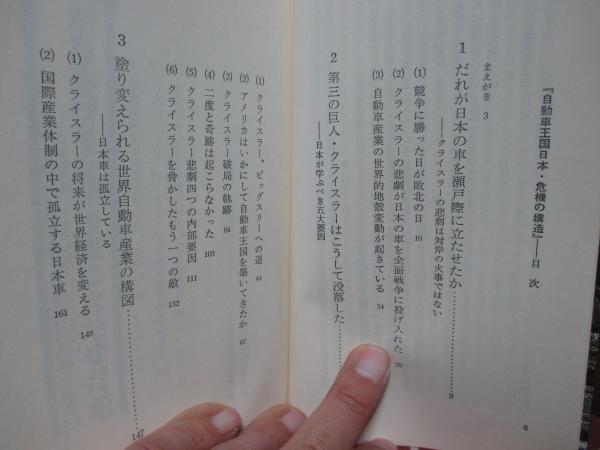 『自動車王国日本・危機の構造』――目次
まえがき 3
1 だれが日本の車を瀬戸際に立たせたか……9
――クライスラーの悲劇は対岸の火事ではない
(1) 競争に勝った日が敗北の日 10
(2) クライスラーの悲劇が日本の車を全面戦争に投げ入れた 20
(3) 自動車産業の世界的地殻変動が起きている 34
2 第三の巨人・クライスラーはこうして没落した……
――日本が学ぶべき五大要因
6
(1) クライスラー、ビッグスリーへの道 44
(2) アメリカはいかにして自動車王国を築いてきたか 67
(3) クライスラー破局の軌跡 84
(4) 二度と奇跡は起こらなかった 103
(5) クライスラー悲劇四つの内部要因 111
(6) クライスラーを脅かしたもう一つの敵 132
3 塗り変えられる世界自動車産業の構図……147
――日本車は孤立している
(1) クライスラーの将来が世界経済を変える 148
(2) 国際産業体制の中で孤立する日本車 161